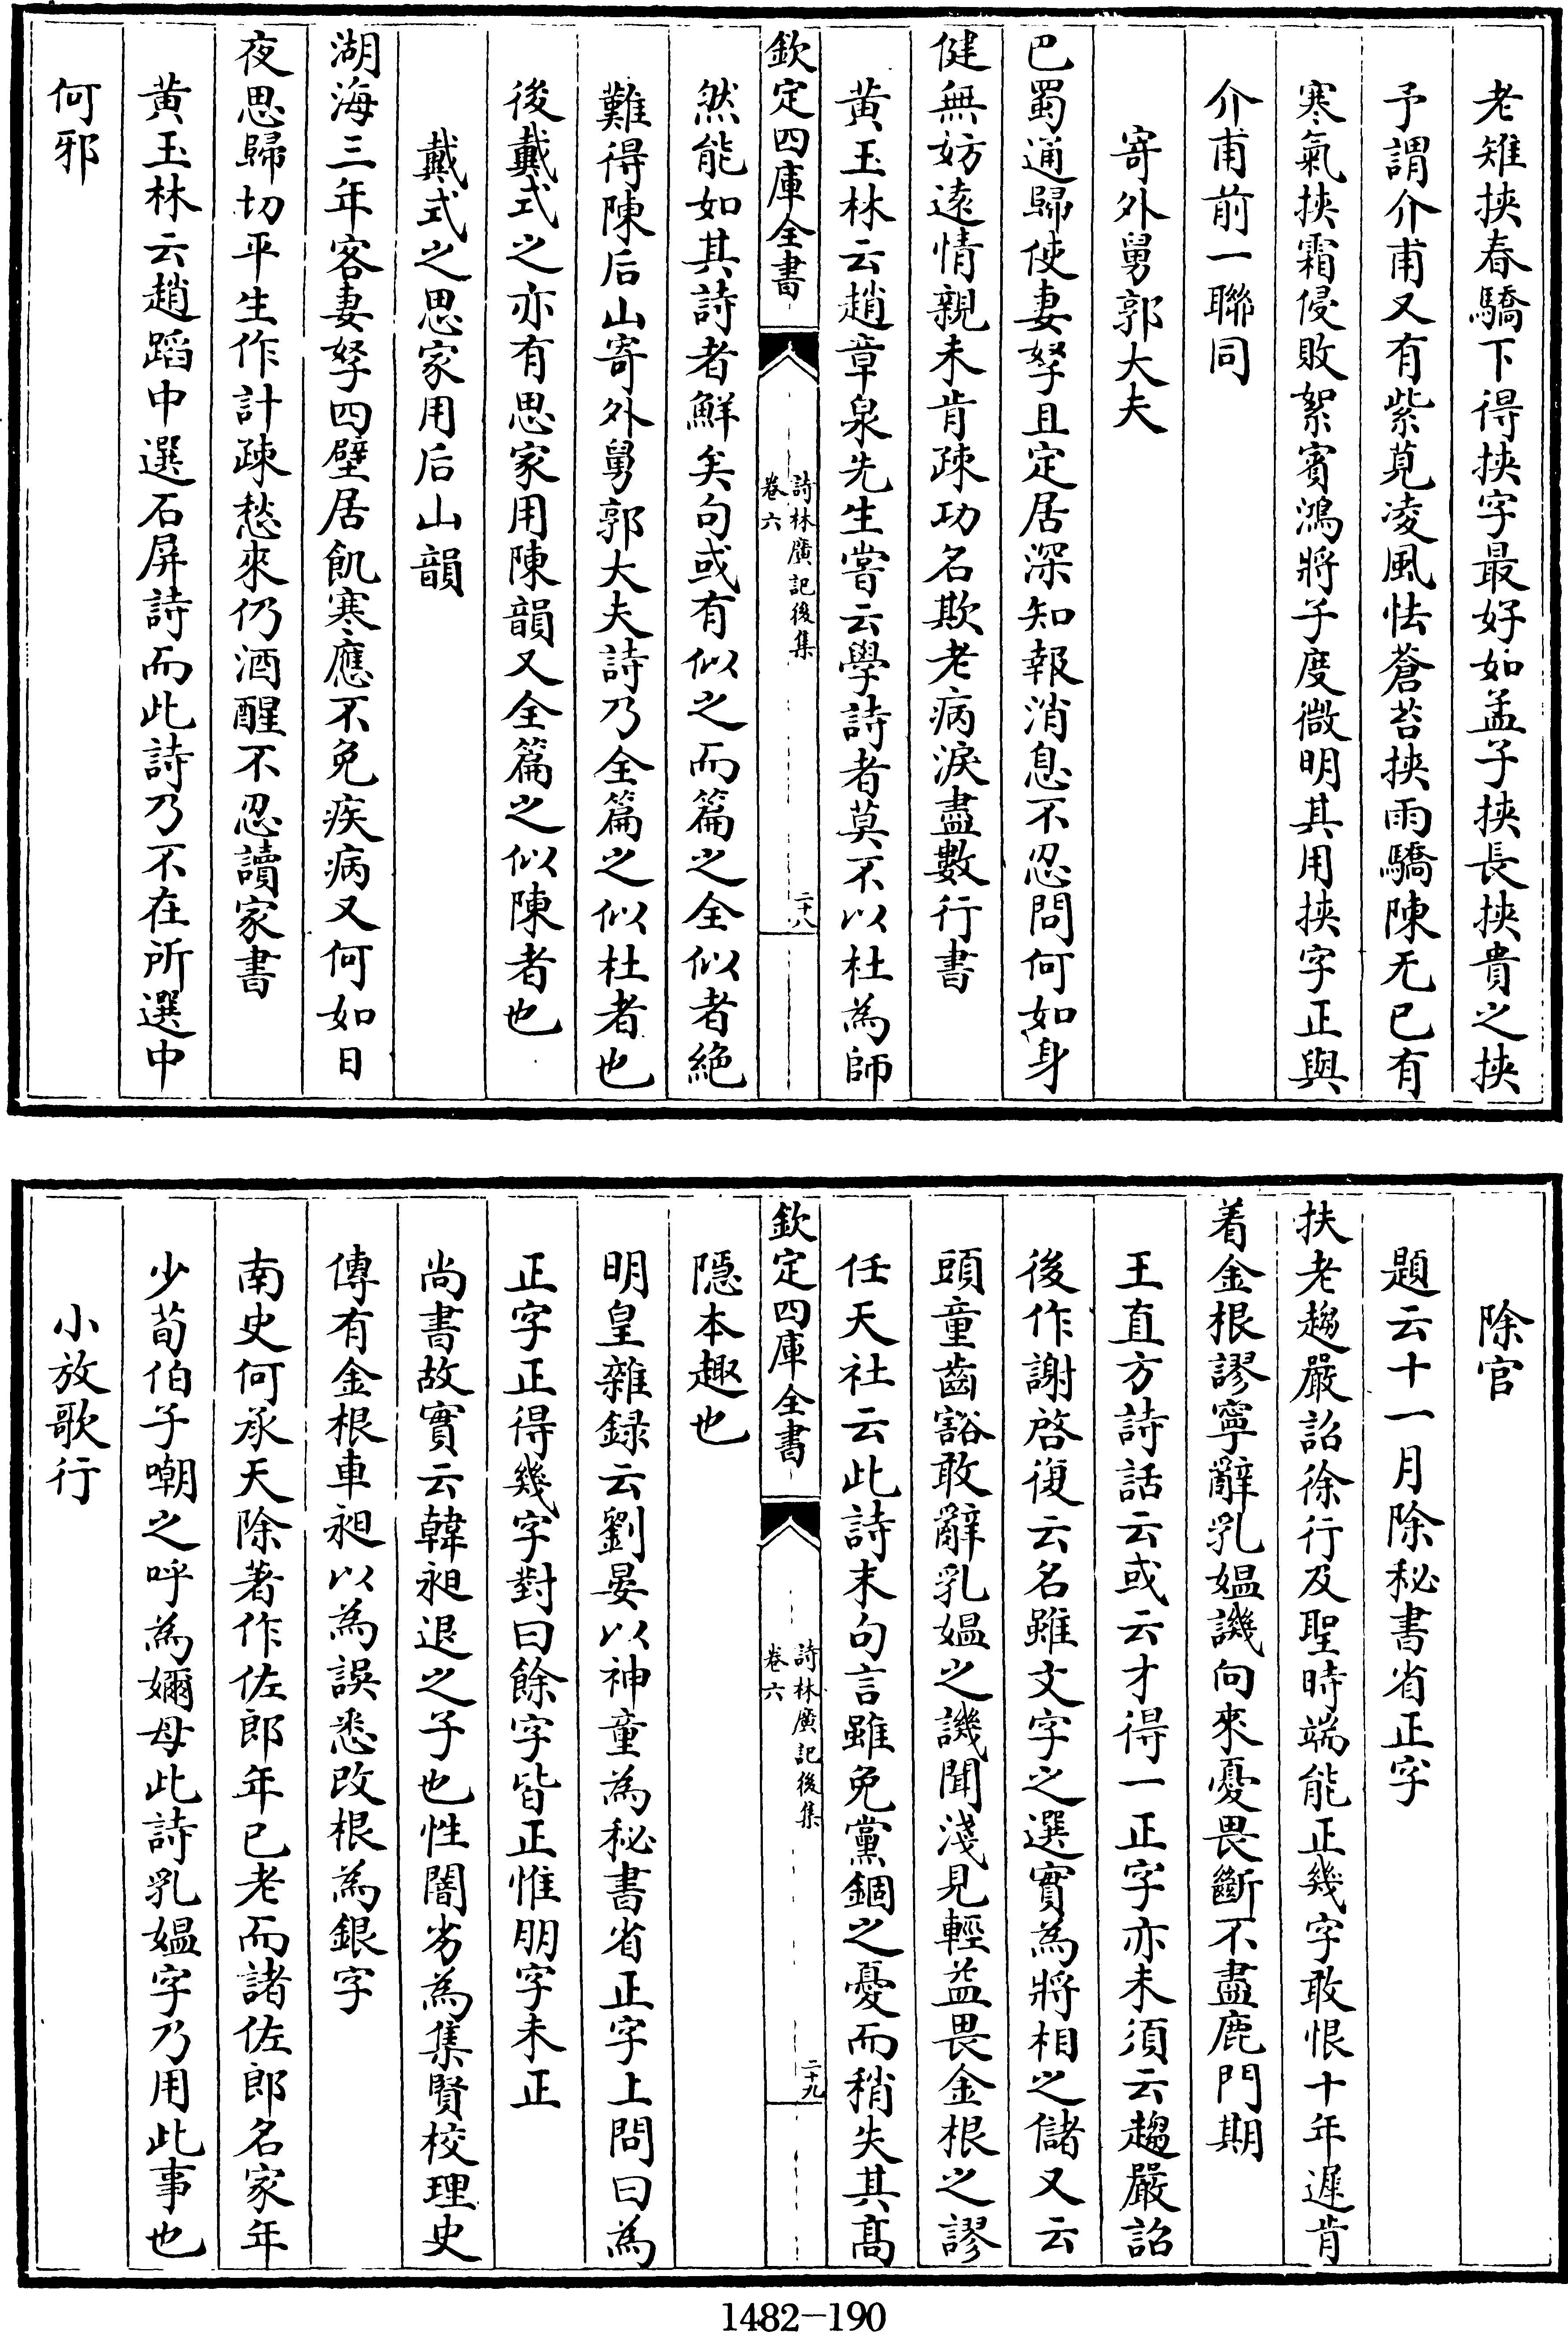 老雉挾春驕下得挾字最好如孟子挾長挾貴之挾
予謂介甫又有紫莧凌風怯蒼苔挾雨驕陳无已有
寒氣挾霜侵敗絮賓鴻將子度微明其用挾字正與
介甫前一聯同
寄外舅郭大夫
巴蜀通歸使妻孥且定居深知報消息不忍問何如身
健無妨遠情親未肯疎功名欺老病淚盡數行書
黄玉林云趙章泉先生嘗云學詩者莫不以杜為師
欽定四庫全書
詩林廣記後集
卷六
二十八
然能如其詩者鮮矣句或有似之而篇之全似者絶
難得陳后山寄外舅郭大夫詩乃全篇之似杜者也
後戴式之亦有思家用陳韻又全篇之似陳者也
戴式之思家用后山韻
湖海三年客妻孥四壁居飢寒應不免疾病又何如日
夜思歸切平生作計疎愁來仍酒醒不忍讀家書
黄玉林云趙蹈中選石屏詩而此詩乃不在所選中
何邪
除官
題云十一月除秘書省正字
扶老趨嚴詔徐行及聖時端能正幾字敢恨十年遲肯
着金根謬寧辭乳媼譏向來憂畏斷不盡鹿門期
王直方詩話云或云才得一正字亦未須云趨嚴詔
後作謝啓復云名雖文字之選實為將相之儲又云
頭童齒豁敢辭乳媼之譏聞淺見輕益畏金根之謬
任天社云此詩末句言雖免黨錮之憂而稍失其高
欽定四庫全書
詩林廣記後集
卷六
二十九
隱本趣也
明皇雜録云劉晏以神童為秘書省正字上問曰為
正字正得幾字對曰餘字皆正惟朋字未正
尚書故實云韓昶退之子也性闇劣為集賢校理史
傳有金根車昶以為誤悉改根為銀字
南史何承天除著作佐郎年已老而諸佐郎名家年
少荀伯子嘲之呼為嬭母此詩乳媼字乃用此事也
小放歌行
1482—190